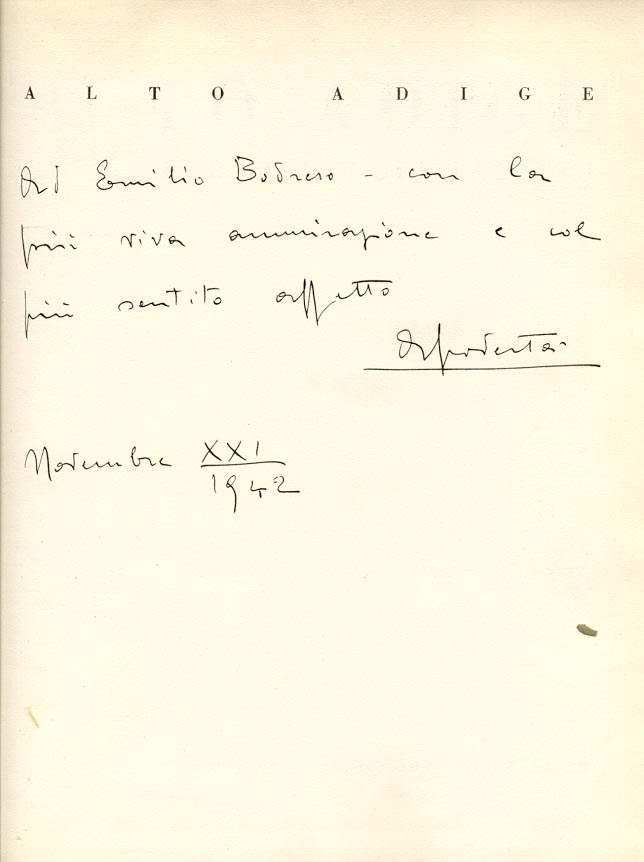 ALTO ADIGE
Ad Emilio Bodrero - con la
più viva ammirazione e col
più sentito affetto
Apodestà
Novembre XXI
1942